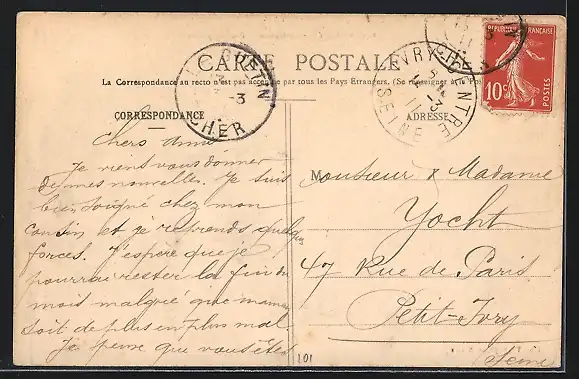 CARTE POSTALE
La Correspondance au recto n'est pas acceptée par tous les Pays Etrangers. (Se renseigner à la Poste)
CORRESPONDANCE
ADRESSE
CHER
IVRY CENTRE
SEINE
REPUBLIQUE FRANÇAISE
10c
POSTES
Chers Amis
Je viens vous donner
de mes nouvelles. Je suis
bien soigné chez mon
cousin et je reprends quelques
forces. J'espère que je
pourrai rester la fin du
mois malgré que maman
soit de plus en plus mal
Je pense que vous êtes
Monsieur & Madame
Yocht
47 Rue de Paris
Petit-Ivry
Seine
101